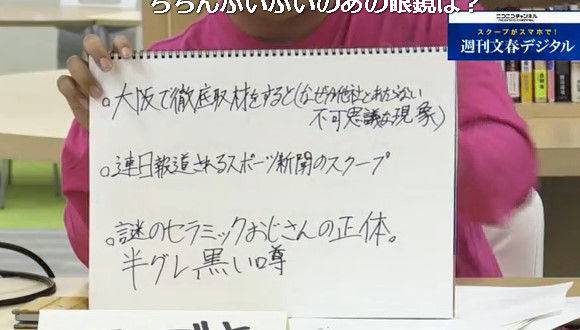 ちちんぷいぷいのあの眼鏡は？
ニコニコチャンネル
スクープがスマホで！
週刊文春デジタル
。大阪で徹底取材をすると(なぜか他社とあたらない
不可思議な現象)
。連日報道されるスポーツ新聞のスクープ
。謎のセラミックおじさんの正体。
半グレ,黒い噂